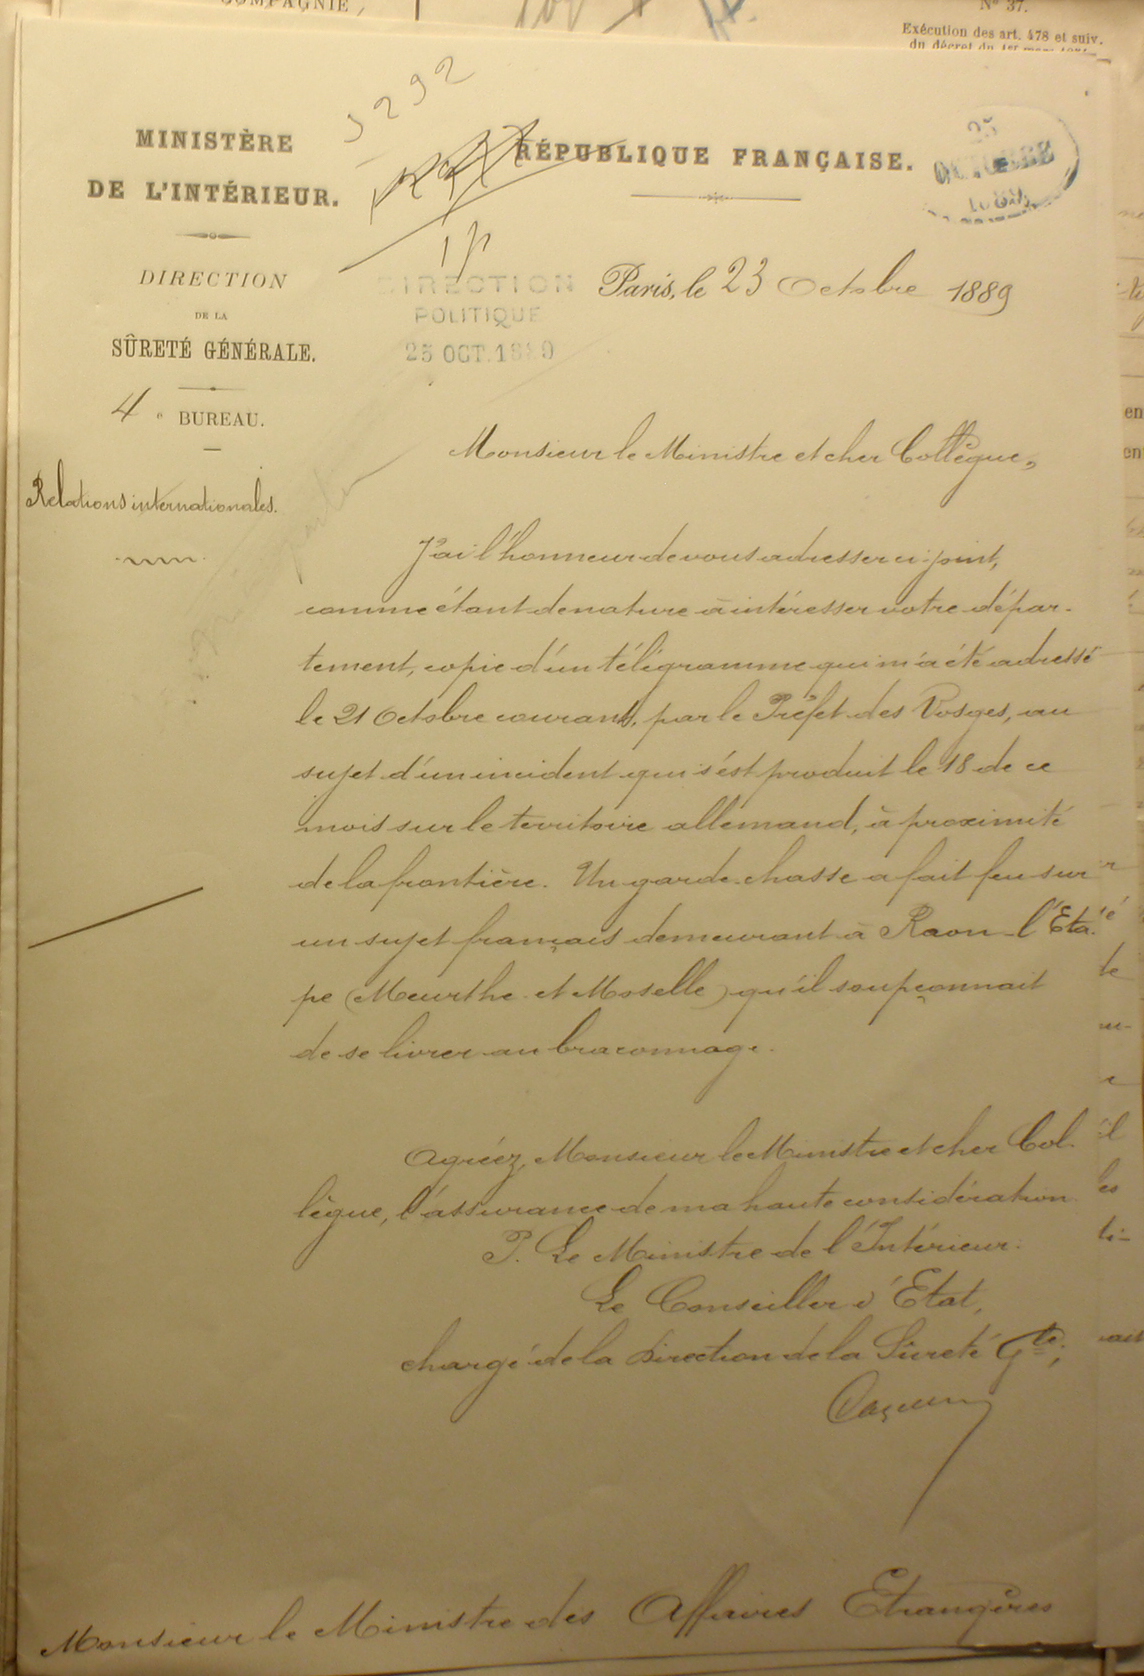 COMPAGNIE,
N° 37.
Exécution des art. 478 et suiv.
du décret du 1er mars
3292
MINISTÈRE
DE L'INTÉRIEUR.
RÉPUBLIQUE FRANÇAISE.
25
OCTOBRE
1889
DIRECTION
DE LA
SÛRETÉ GÉNÉRALE.
4e BUREAU.
Relations internationales.
DIRECTION
POLITIQUE
25 OCT. 1889
Paris, le 23 Octobre 1889
Monsieur le Ministre et cher Collègue,
J'ai l'honneur de vous adresser ci-joint,
comme étant de nature à intéresser votre dépar-
tement, copie d'un télégramme qui m'a été adressé
le 21 Octobre courant, par le Préfet des Vosges, au
sujet d'un incident qui s'est produit le 18 de ce
mois sur le territoire allemand, à proximité
de la frontière. Un garde-chasse a fait feu sur
un sujet français demeurant à Raon-l'Eta-
pe (Meurthe et Moselle) qu'il soupçonnait
de se livrer au braconnage.
Agréez, Monsieur le Ministre et cher Col-
lègue, l'assurance de ma haute considération
P. Le Ministre de l'Intérieur.
Le Conseiller d'Etat,
chargé de la Direction de la Sûreté Gle,
Monsieur le Ministre des Affaires Etrangères